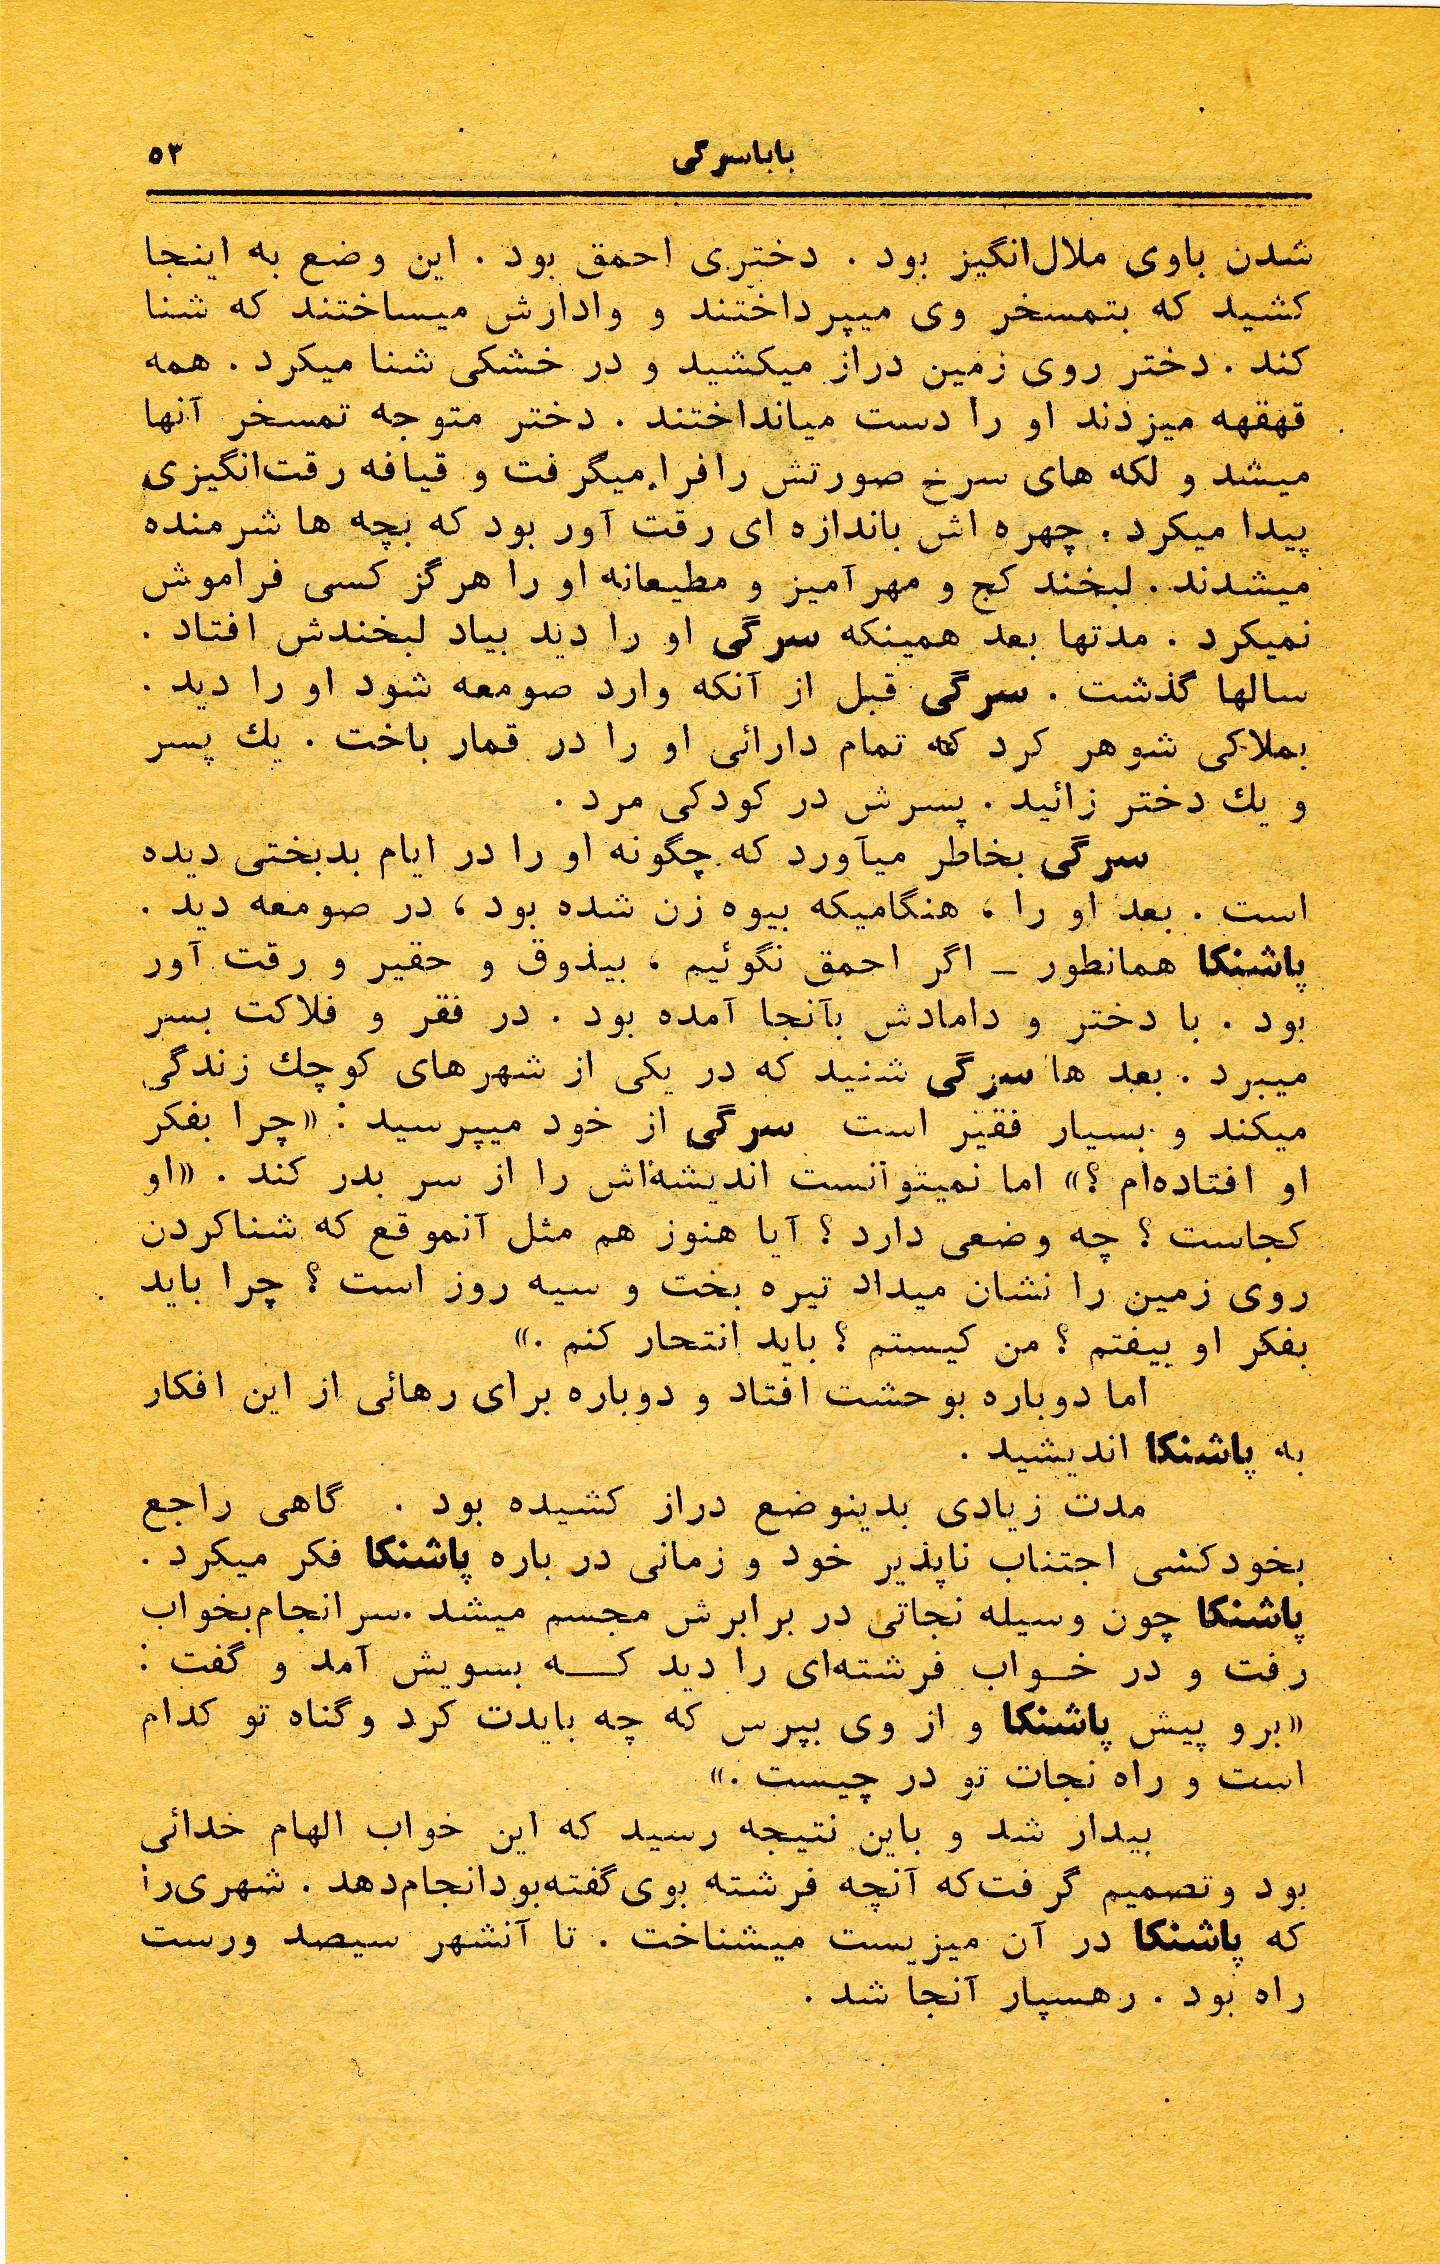 باباسرگی ۵۳
شدن باوی ملال‌انگیز بود . دختری احمق بود . این وضع به اینجا
کشید که بتمسخر وی میپرداختند و وادارش میساختند که شنا
کند . دختر روی زمین دراز میکشید و در خشکی شنا میکرد . همه
قهقهه میزدند او را دست میانداختند . دختر متوجه تمسخر آنها
میشد و لکه های سرخ صورتش رافرا میگرفت و قیافه رقت‌انگیزی
پیدا میکرد . چهره اش باندازه ای رقت آور بود که بچه ها شرمنده
میشدند . لبخند کج و مهرآمیز و مطیعانه او را هرگز کسی فراموش
نمیکرد . مدتها بعد همینکه سرگی او را دید بیاد لبخندش افتاد .
سالها گذشت . سرگی قبل از آنکه وارد صومعه شود او را دید .
بملاکی شوهر کرد که تمام دارائی او را در قمار باخت . یك پسر
و یك دختر زائید . پسرش در کودکی مرد .
سرگی بخاطر میآورد که چگونه او را در ایام بدبختی دیده
است . بعد او را ، هنگامیکه بیوه زن شده بود ، در صومعه دید .
پاشنکا همانطور ـ اگر احمق نگوئیم ، بیذوق و حقیر و رقت آور
بود . با دختر و دامادش بآنجا آمده بود . در فقر و فلاکت بسر
میبرد . بعد ها سرگی شنید که در یکی از شهرهای کوچك زندگی
میکند و بسیار فقیر است سرگی از خود میپرسید : «چرا بفکر
او افتاده‌ام ؟» اما نمیتوانست اندیشه‌اش را از سر بدر کند . «او
کجاست ؟ چه وضعی دارد ؟ آیا هنوز هم مثل آنموقع که شناکردن
روی زمین را نشان میداد تیره بخت و سیه روز است ؟ چرا باید
بفکر او بیفتم ؟ من کیستم ؟ باید انتحار کنم .»
اما دوباره بوحشت افتاد و دوباره برای رهائی از این افکار
به پاشنکا اندیشید .
مدت زیادی بدینوضع دراز کشیده بود . گاهی راجع
بخودکشی اجتناب ناپذیر خود و زمانی در باره پاشنکا فکر میکرد .
پاشنکا چون وسیله نجاتی در برابرش مجسم میشد .سرانجام‌بخواب
رفت و در خـواب فرشته‌ای را دید کـه بسویش آمد و گفت :
«برو پیش پاشنکا و از وی بپرس که چه بایدت کرد وگناه تو کدام
است و راه نجات تو در چیست .»
بیدار شد و باین نتیجه رسید که این خواب الهام خدائی
بود وتصمیم گرفت‌که آنچه فرشته بوی‌گفته‌بودانجام‌دهد . شهری‌را
که پاشنکا در آن میزیست میشناخت . تا آنشهر سیصد ورست
راه بود . رهسپار آنجا شد .